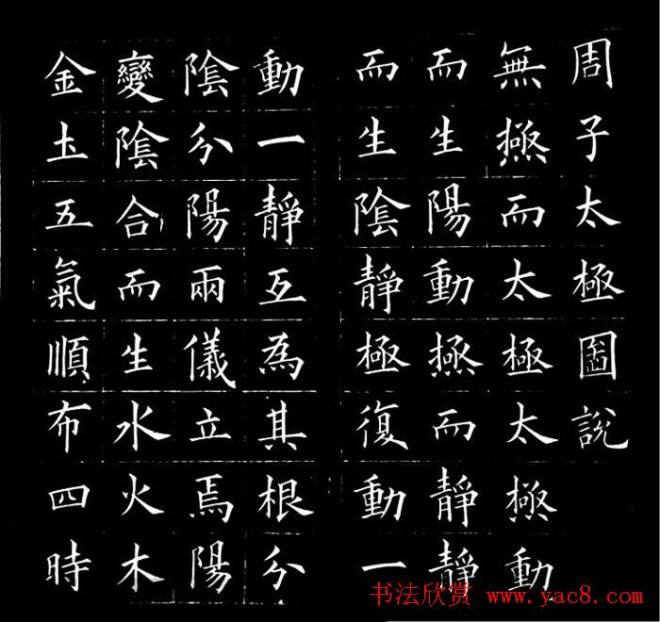 周子太極圖說
無極而太極太極動
而生陽動極而靜靜
而生陰靜極復動一
動一靜互為其根分
陰分陽兩儀立焉陽
變陰合而生水火木
金土五氣順布四時
书法欣赏 www.yac8.com